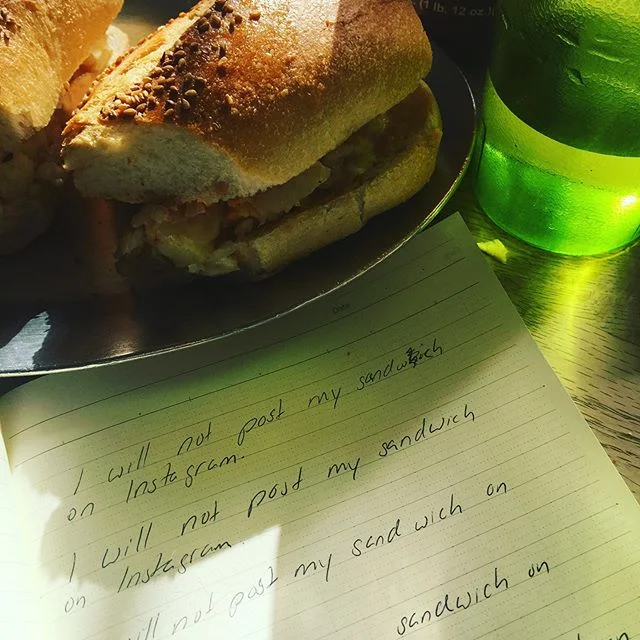 (1 lb. 12 oz.)
Date
I will not post my sandwich
on Instagram.
I will not post my sandwich
on Instagram.
will not post my sandwich on
sandwich on
on